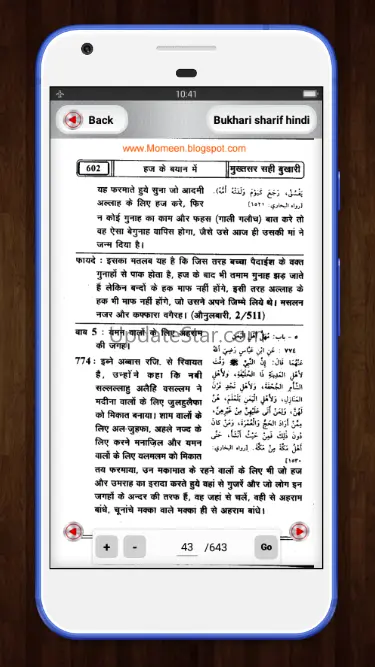 10:41
Back
Bukhari sharif hindi
www.Momeen.blogspot.com
602
हज के बयान में
मुख्तसर सही बुखारी
यह फरमाते हुये सुना जो आदमी
अल्लाह के लिए हज करे, फिर
न कोई गुनाह का काम और फहस (गाली गलौच) बात करे तो
वह ऐसा बेगुनाह वापिस होगा, जैसे उसे आज ही उसकी मां ने
जन्म दिया है।
يَفْسُقْ، رَجَعَ كَيَوْمِ وَلَدَتْهُ أُمُّهُ).
[رواه البخاري: ١٥٢١]
फायदे : इसका मतलब यह है कि जिस तरह बच्चा पैदाईश के वक्त
गुनाहों से पाक होता है, हज के बाद भी तमाम गुनाह झड़ जाते
हैं लेकिन बन्दों के हक माफ नहीं होंगे, इसी तरह अल्लाह के
हक भी माफ नहीं होंगे, जो उसने अपने जिम्मे लिये थे। मसलन
नजर और कफ्फारा वगैरह। (औनुलबारी, 2/511)
UpdateStar.com
बाब 5 : यमन वालों के लिए अहराम
की जगह।
774 : इब्ने अब्बास रजि. से रिवायत
है, उन्होंने कहा कि नबी
सल्लल्लाहु अलैहि वसल्लम ने
मदीना वालों के लिए जुलहुलैफा
को मिकात बनाया। शाम वालों के
लिए अल-जुहफा, अहले नज्द के
लिए करने मनाजिल और यमन
वालों के लिए यलमलम को मिकात
٥ - باب: مُهَلُّ أَهْلِ اليَمَنِ
٧٧٤ : عَنِ ابْنِ عَبَّاسٍ رَضِيَ اللهُ
عَنْهُمَا قَالَ: إِنَّ النَّبِيَّ ﷺ وَقَّتَ
لأَهْلِ المَدِينَةِ ذَا الحُلَيْفَةِ، وَلأَهْلِ
الشَّأْمِ الجُحْفَةَ، وَلأَهْلِ نَجْدٍ قَرْنَ
المَنَازِلِ، وَلأَهْلِ اليَمَنِ يَلَمْلَمَ، هُنَّ
لَهُنَّ، وَلِمَنْ أَتَى عَلَيْهِنَّ مِنْ غَيْرِهِنَّ،
مِمَّنْ أَرَادَ الحَجَّ وَالعُمْرَةَ، وَمَنْ كانَ
دُونَ ذٰلِكَ فَمِنْ حَيْثُ أَنْشَأَ، حَتَّى
أَهْلُ مَكَّةَ مِنْ مَكَّةَ. [رواه البخاري:
١٥٣٠]
तय फरमाया, उन मकामात के रहने वालों के लिए भी जो हज
और उमराह का इरादा करते हुये वहां से गुजरें और जो लोग इन
जगहों के अन्दर की तरफ हैं, वह जहां से चलें, वही से अहराम
बांधे, चूनांचे मक्का वाले मक्का ही से अहराम बांधे।
+
-
43
/643
Go